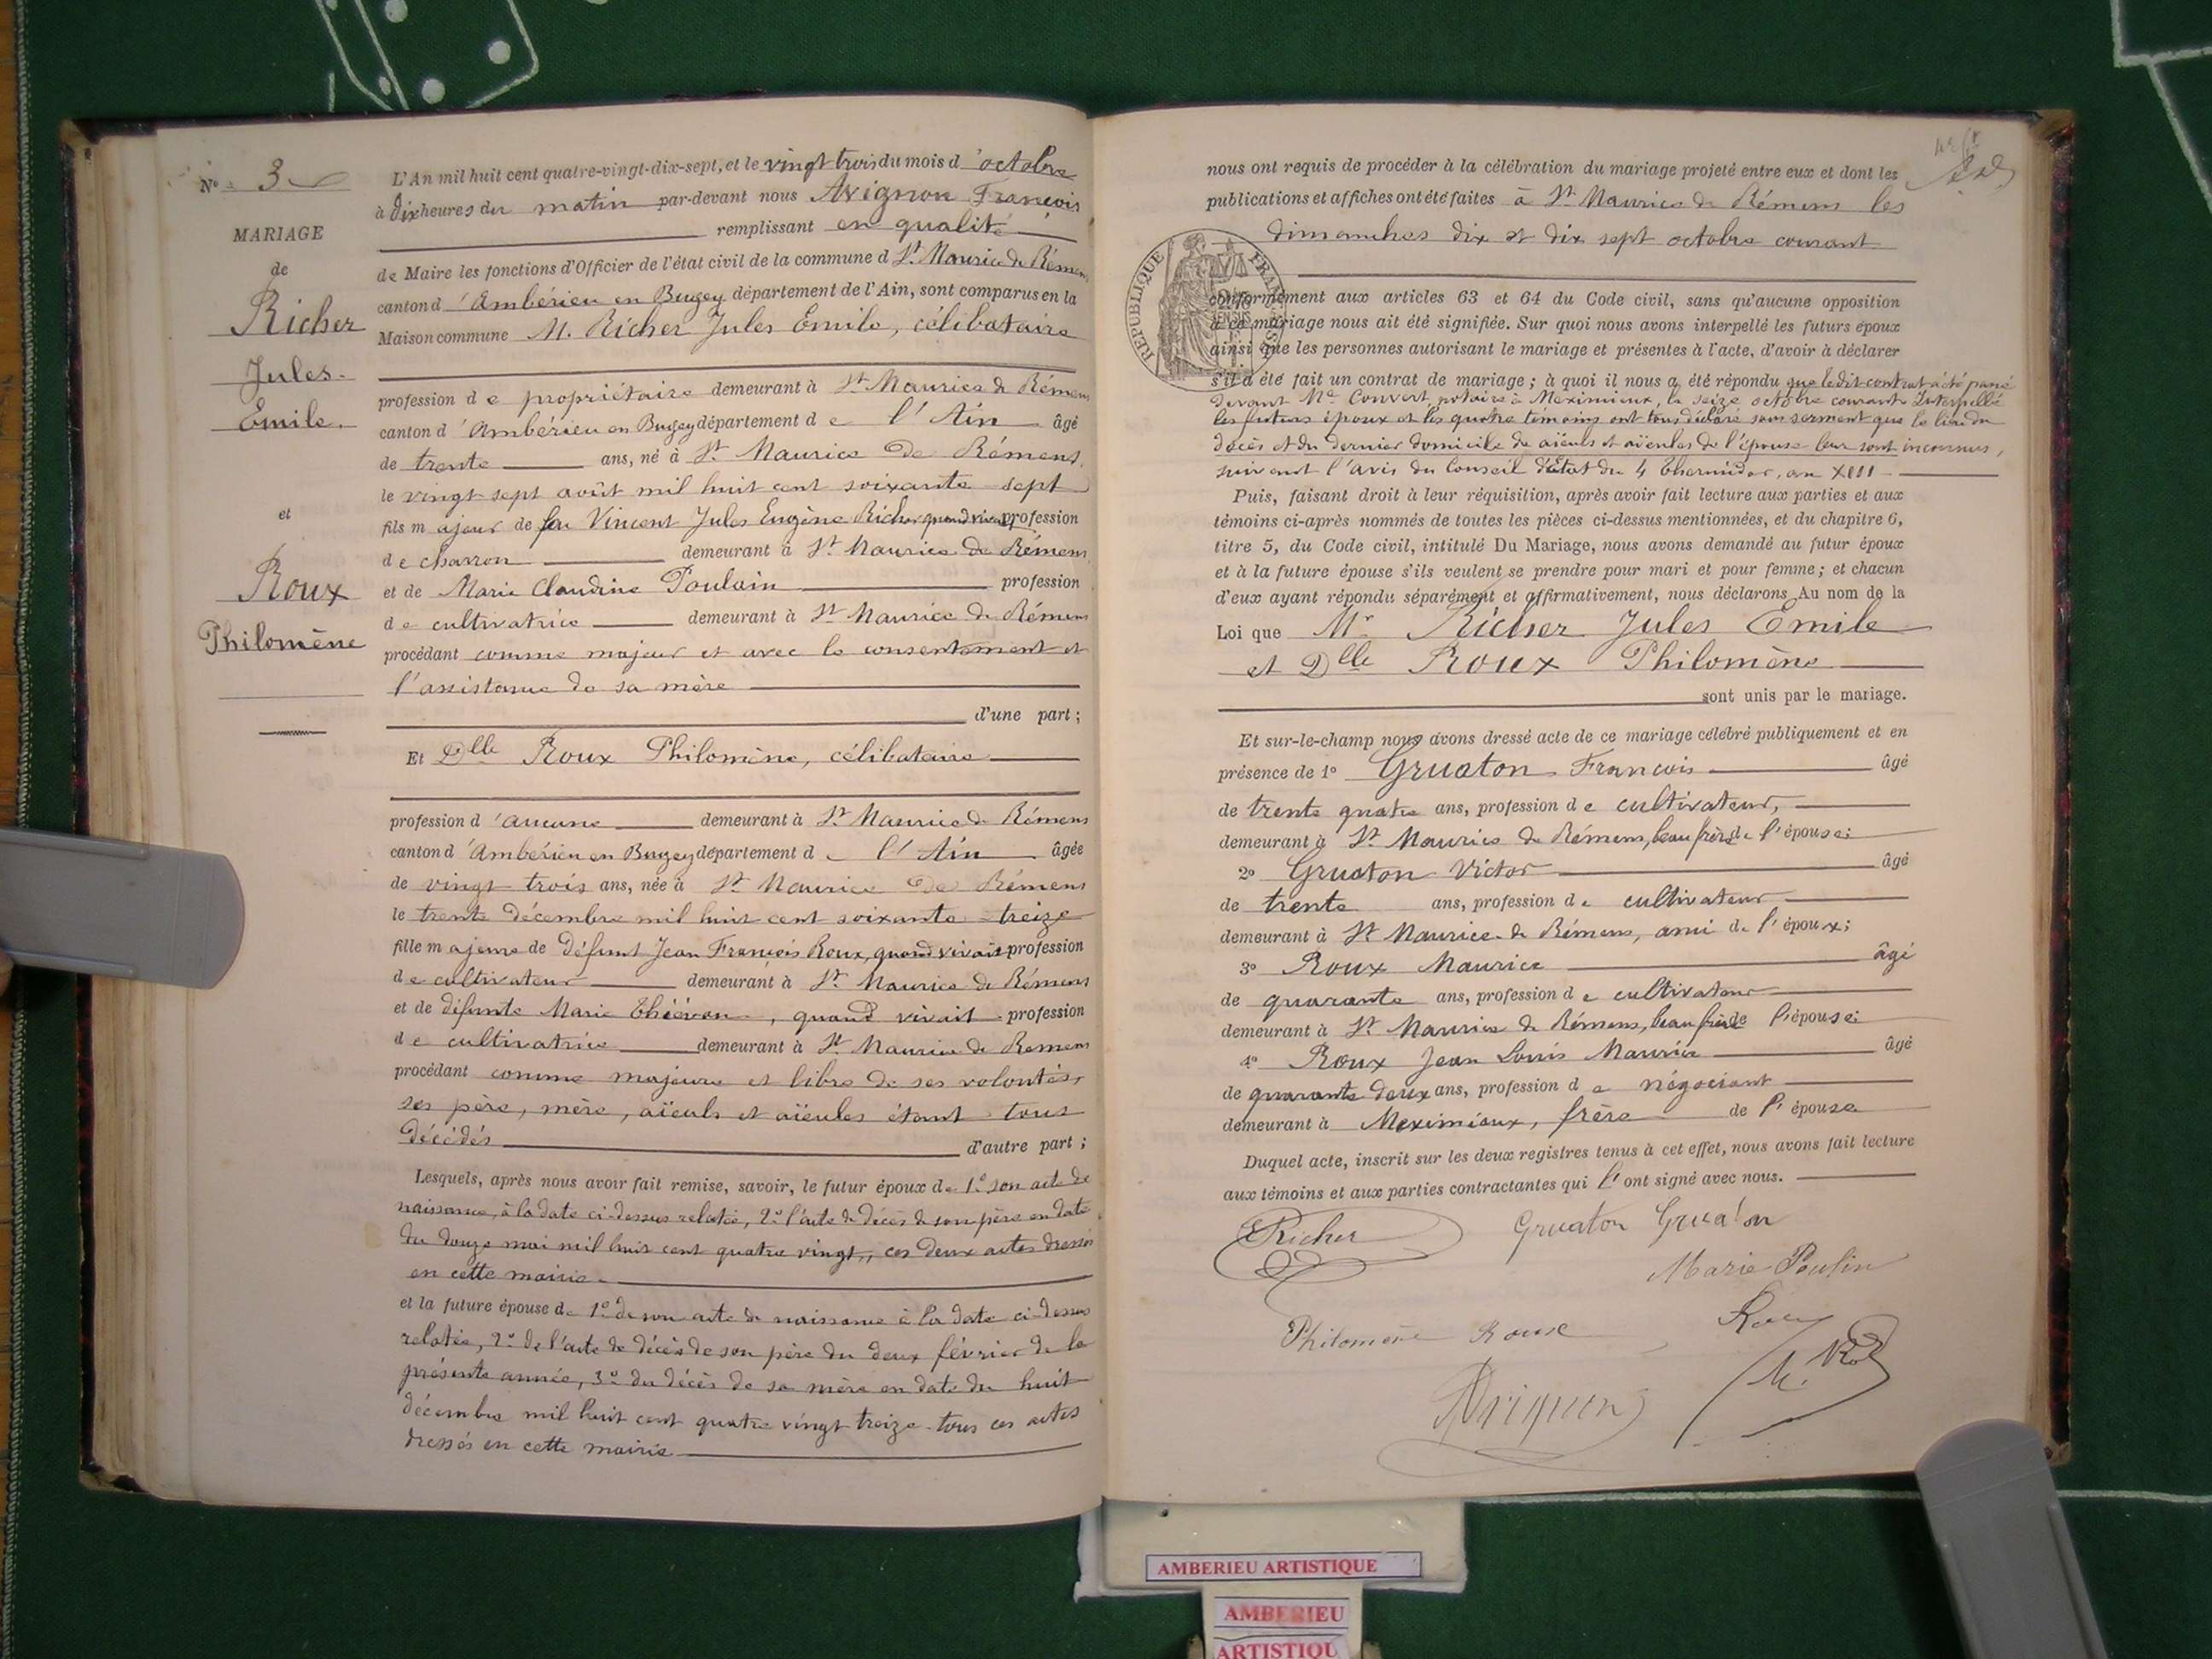 N° 3
MARIAGE
de
Richer
Jules
Emile.
et
Roux
Philomène
L'An mil huit cent quatre-vingt-dix-sept, et le vingt trois du mois d'octobre
à dix heures du matin par-devant nous Avignon François
remplissant en qualité
de Maire les fonctions d'Officier de l'état civil de la commune d St Maurice de Rémens
canton d'Ambérieu en Bugey département de l'Ain, sont comparus en la
Maison commune M. Richer Jules Emile, célibataire
profession de propriétaire demeurant à St Maurice de Rémens
canton d'Ambérieu en Bugey département de l'Ain âgé
de trente ans, né à St Maurice de Rémens,
le vingt sept août mil huit cent soixante sept
fils majeur de feu Vincent Jules Eugène Richer quand vivait profession
de charron demeurant à St Maurice de Rémens
et de Marie Claudine Poulain profession
de cultivatrice demeurant à St Maurice de Rémens
procédant comme majeur et avec le consentement et
l'assistance de sa mère
d'une part ;
Et Dlle Roux Philomène, célibataire
profession d'aucune demeurant à St Maurice de Rémens
canton d'Ambérieu en Bugey département de l'Ain âgée
de vingt trois ans, née à St Maurice de Rémens
le trente décembre mil huit cent soixante treize
fille majeure de défunt Jean François Roux, quand vivait profession
de cultivateur demeurant à St Maurice de Rémens
et de défunte Marie, quand vivait profession
de cultivatrice demeurant à St Maurice de Remens
procédant comme majeure et libre de ses volontés,
ses père, mère, aïeuls et aïeules étant tous
décédés d'autre part ;
Lesquels, après nous avoir fait remise, savoir, le futur époux de 1° son acte de
naissance, à la date ci-dessus relatée, 2° l'acte de décès de son père en date
du douze mai mil huit cent quatre vingt, ces deux actes dressés
en cette mairie.
et la future épouse de 1° de son acte de naissance à la date ci-dessus
relatée, 2° de l'acte de décès de son père du deux février de la
présente année, 3° du décès de sa mère en date du huit
décembre mil huit cent quatre vingt treize tous ces actes
dressés en cette mairie
nous ont requis de procéder à la célébration du mariage projeté entre eux et dont les
publications et affiches ont été faites à St Maurice de Rémens les
dimanches dix et dix sept octobre courant
RÉPUBLIQUE FRANÇAISE
conformément aux articles 63 et 64 du Code civil, sans qu'aucune opposition
à ce mariage nous ait été signifiée. Sur quoi nous avons interpellé les futurs époux
ainsi que les personnes autorisant le mariage et présentes à l'acte, d'avoir à déclarer
s'il a été fait un contrat de mariage ; à quoi il nous a été répondu que ledit contrat a été passé
devant Me Convert, notaire à Meximieux, le seize octobre courant. Interpellé
les futurs époux et les quatre témoins ont tous déclaré sous serment que le lieu du
décès et du dernier domicile de aïeuls et aïeules de l'épouse leur sont inconnus,
suivant l'avis du Conseil d'état du 4 Thermidor, an XIII
Puis, faisant droit à leur réquisition, après avoir fait lecture aux parties et aux
témoins ci-après nommés de toutes les pièces ci-dessus mentionnées, et du chapitre 6,
titre 5, du Code civil, intitulé Du Mariage, nous avons demandé au futur époux
et à la future épouse s'ils veulent se prendre pour mari et pour femme ; et chacun
d'eux ayant répondu séparément et affirmativement, nous déclarons Au nom de la
Loi que Mr Richer Jules Emile
et Dlle Roux Philomène
sont unis par le mariage.
Et sur-le-champ nous avons dressé acte de ce mariage célébré publiquement et en
présence de 1° Gruaton François âgé
de trente quatre ans, profession de cultivateur,
demeurant à St Maurice de Rémens, beau frère de l'épouse ;
2° Gruaton Victor âgé
de trente ans, profession de cultivateur
demeurant à St Maurice de Rémens, ami de l'époux ;
3° Roux Maurice âgé
de quarante ans, profession de cultivateur
demeurant à St Maurice de Rémens, beau frère de l'épouse ;
4° Roux Jean Louis Maurice âgé
de quarante deux ans, profession de négociant
demeurant à Meximieux, frère de l'épouse
Duquel acte, inscrit sur les deux registres tenus à cet effet, nous avons fait lecture
aux témoins et aux parties contractantes qui l'ont signé avec nous.
Richer Gruaton Gruaton
Marie Poulin
Philomène Roux Roux
Avignon
AMBERIEU ARTISTIQUE
AMBERIEU
ARTISTIQU